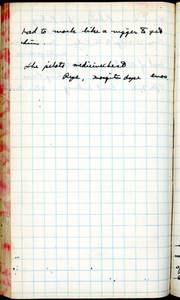 had to work like a nigger to get
him
The pilots medicine chest
Rye, mosquito dope enos